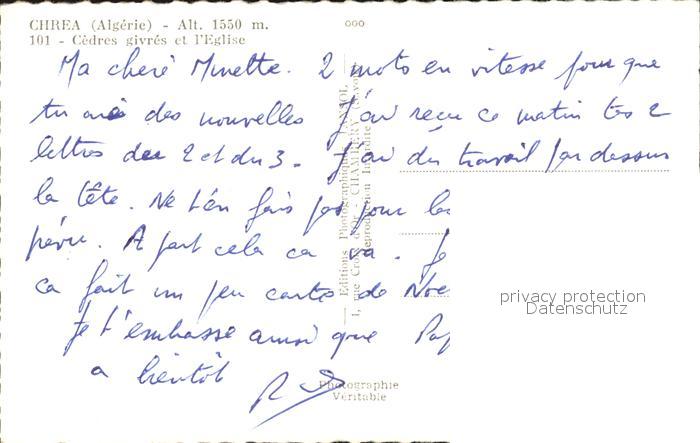 CHREA (Algérie) - Alt. 1550 m.
101 - Cèdres givrés et l'Eglise
Ma cheré Minette. 2 mots en vitesse pour que
tu aies des nouvelles J'ai recu ce matin tes 2
lettres des 2 et du 3. J'ai du travail par dessus
la tête. Ne t'en fais pas pour
A part cela ca va. Je
ca fait un peu carte de Noe
Je t'embrasse ainsi que Pap
a bientôt
Editions Photographiques
rue Croix d'Or - CHAMBERY (Savoie)
Reproduction Interdite
Photographie
Véritable
privacy protection
Datenschutz